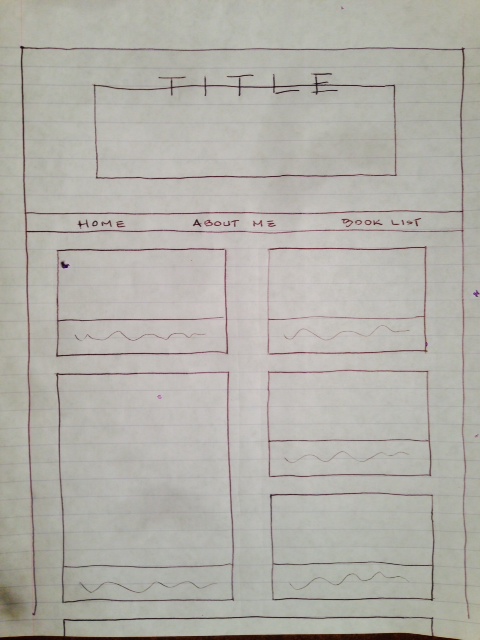 TITLE
HOME ABOUT ME BOOK LIST